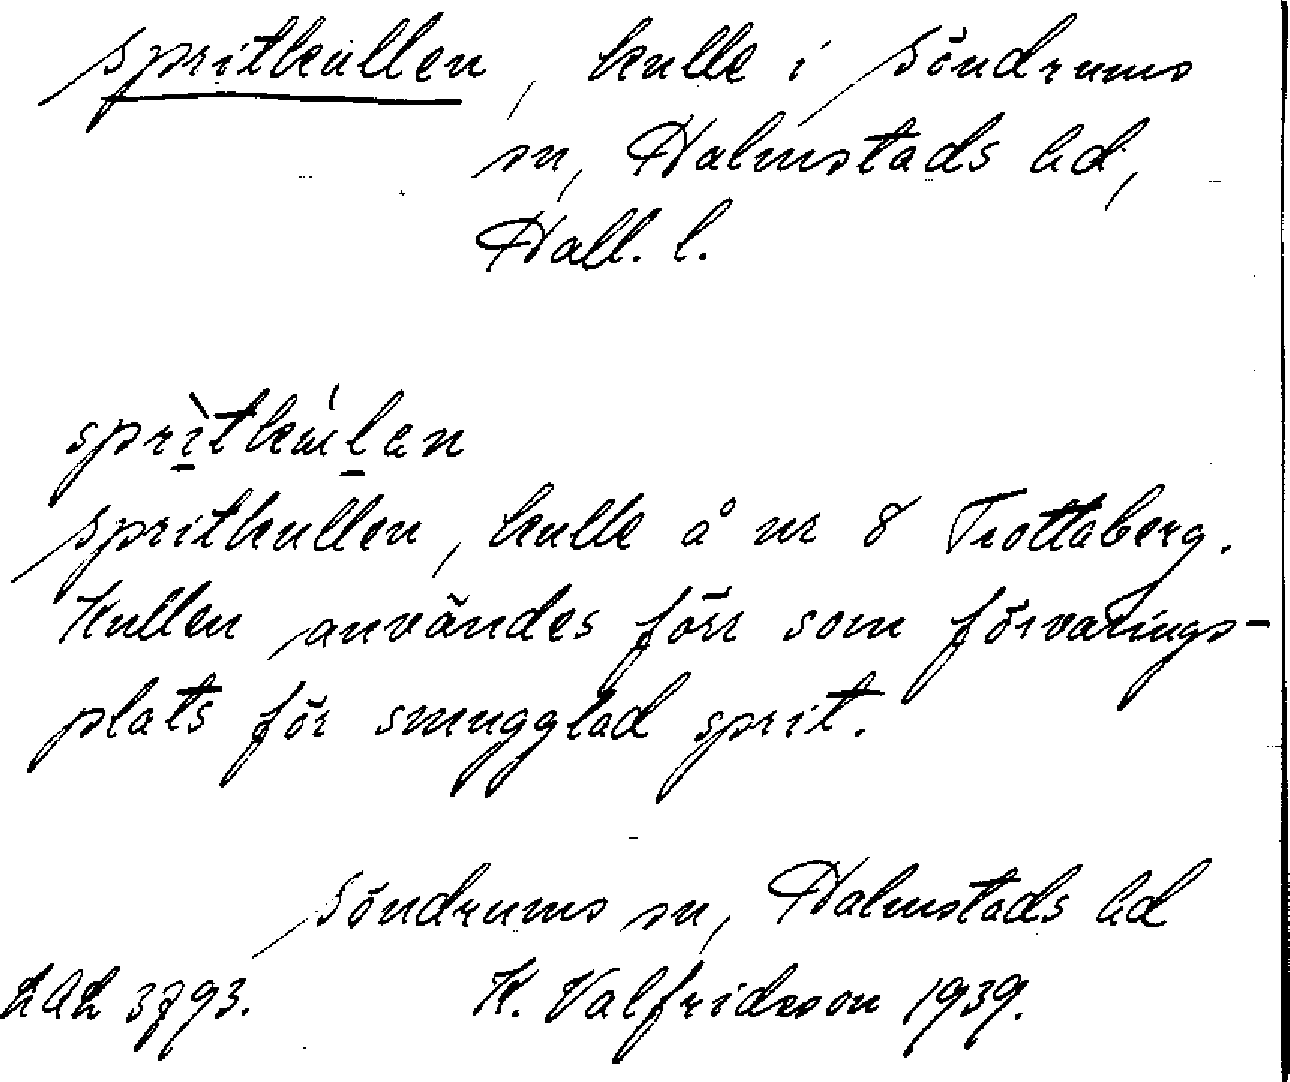 Spritkullen, kulle i Söndrums
sn, Halmstads hd,
Hall. l.
Spritkullen, kulle å nr 8 Trottaberg.
Kullen användes förr som förvarings-
plats för smugglad sprit.
Söndrums sn, Halmstads hd
3793. K. Valfridsson 1939.